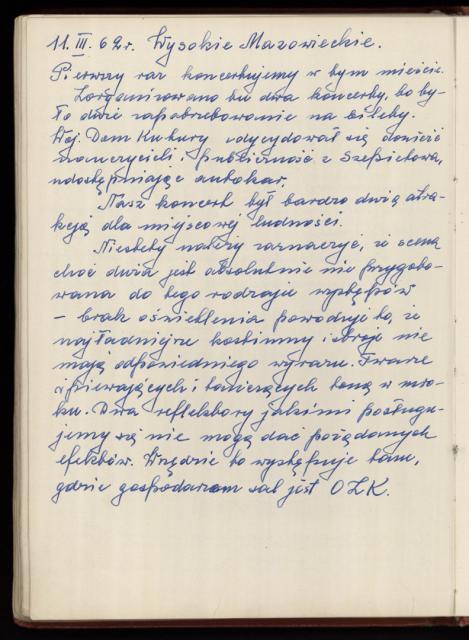 11. III. 62r. Wysokie Mazowieckie.
Pierwszy raz koncertujemy w tym mieście.
Zorganizowano tu dwa koncerty, bo by-
ło duże zapotrzebowanie na bilety.
Woj. Dom Kultury zdecydował się dowieźć
nauczycieli, publiczność z Szepietowa,
udostępniając autokar.
Nasz koncert był bardzo dużą atra-
kcją dla miejscowej ludności.
Niestety należy zaznaczyć, że scena
choć duża jest absolutnie nie przygoto-
wana do tego rodzaju występów
– brak oświetlenia powoduje to, że
najładniejsze kostiumy i stroje nie
mają odpowiedniego wyrazu. Twarze
śpiewających i tańczących toną w mro-
ku. Dwa reflektory jakimi posługu-
jemy się nie mogą dać pożądanych
efektów. Wszędzie to występuje tam,
gdzie gospodarzem sal jest OZK.